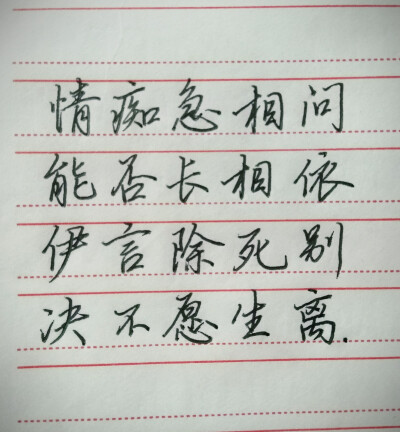 情痴急相问
能否长相依
伊言除死别
决不愿生离.